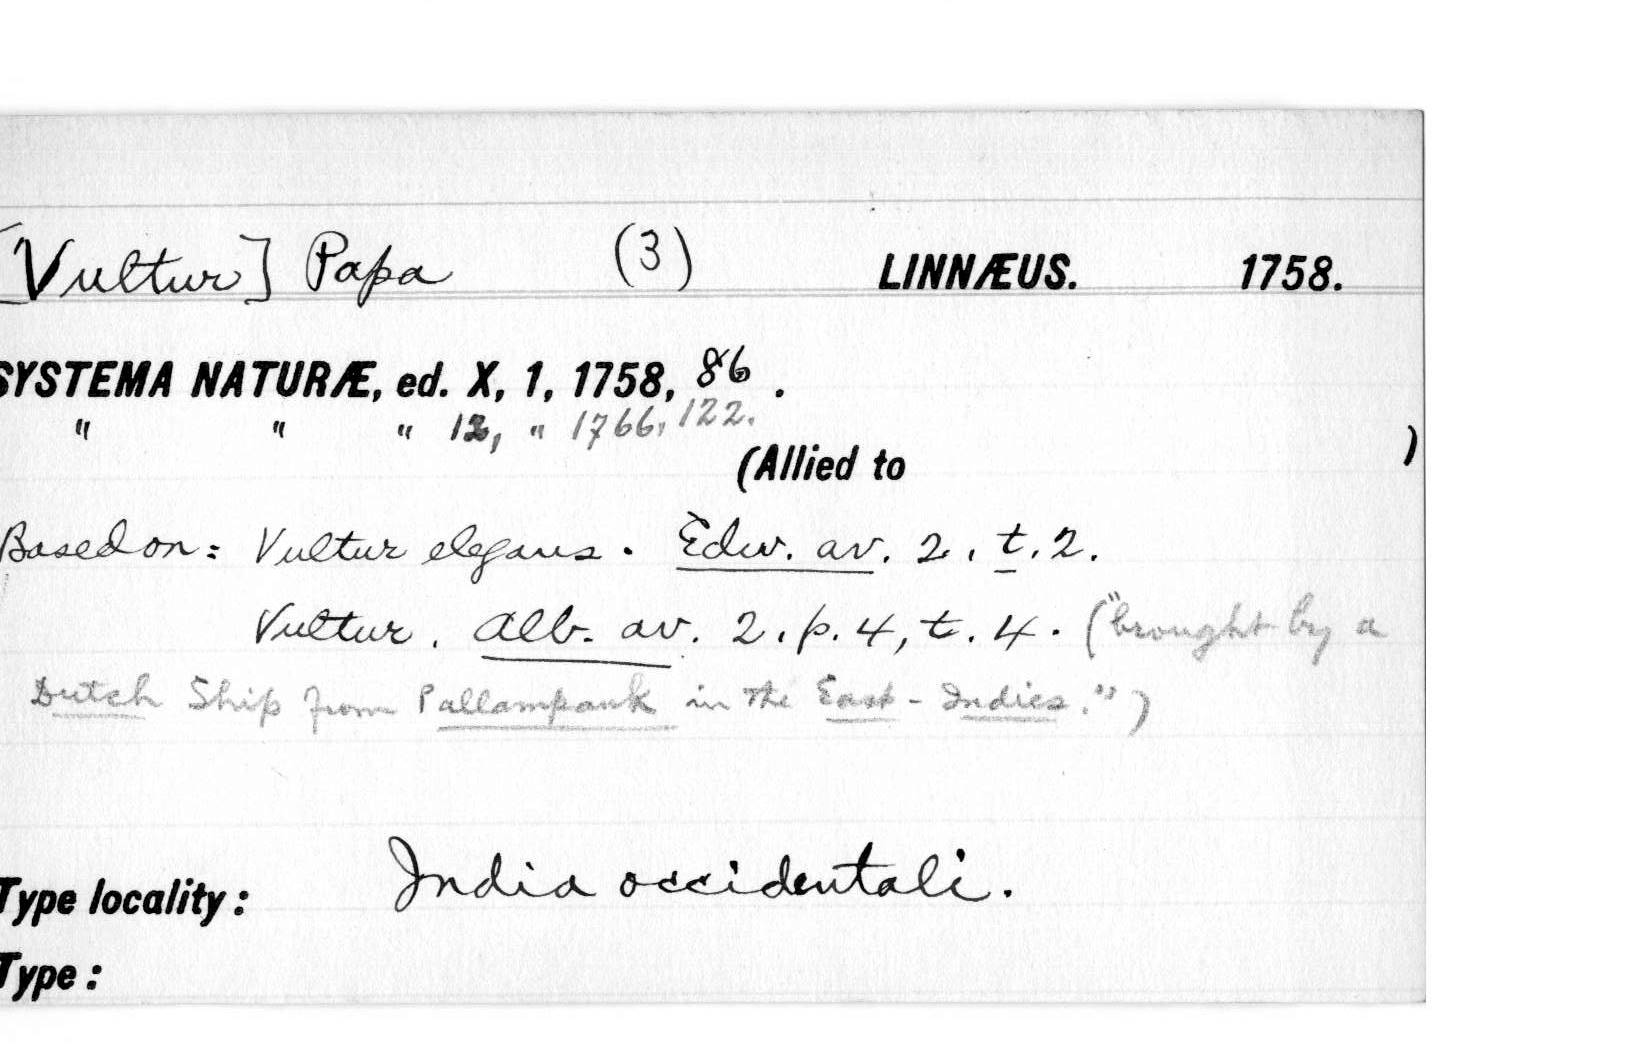 [Vultur] Papa (3) LINNÆUS. 1758.
SYSTEMA NATURÆ, ed. X, 1, 1758, 86.
" " " 12, " 1766, 122.
(Allied to )
Based on: Vultur elegans. Edw. av. 2. t. 2.
Vultur. Alb. av. 2. p. 4, t. 4. ("brought by a
Dutch Ship from Pallampank in the East-Indies.")
India occidentali.
Type locality:
Type: